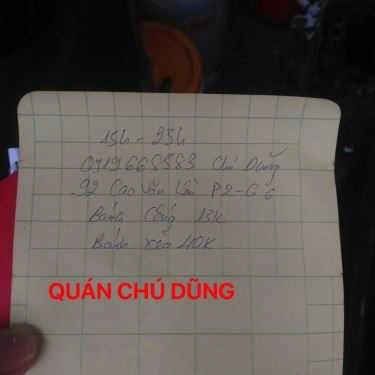 15h - 23h
0919668583 Chú Dũng
92 Cao Văn Lầu P2-Q6
Bánh Cống 13K
Bánh xèo 40K
QUÁN CHÚ DŨNG